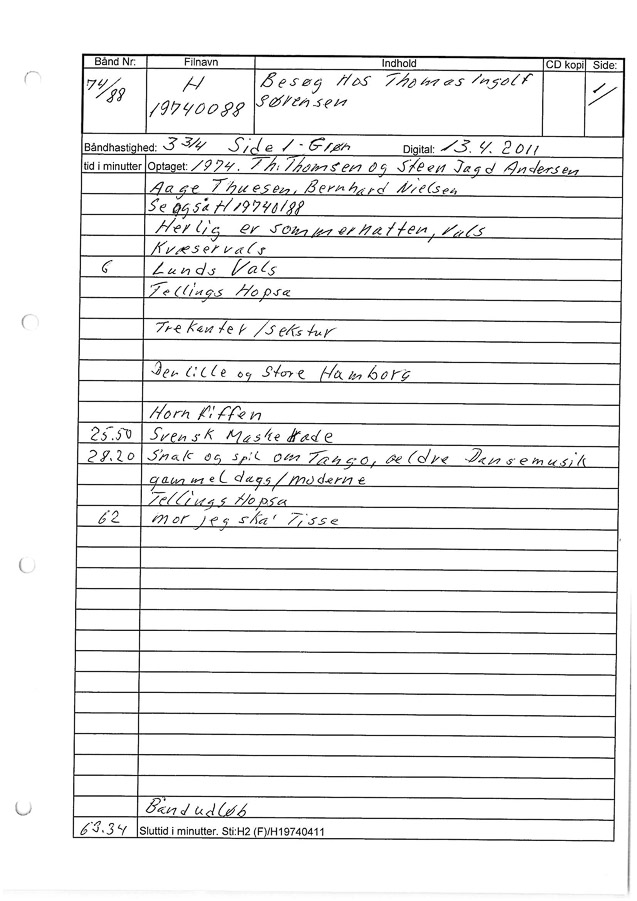 Bånd Nr: Filnavn Indhold CD kopi Side:
74/88 H 19740088 Besøg Hos Thomas Ingolf Sørensen 1/
Båndhastighed: 3 3/4 Side 1 - Grøn Digital: 13.4.2011
tid i minutter Optaget: 1974. Th. Thomsen og Steen Jagd Andersen
Aage Thuesen, Bernhard Nielsen
Se også H19740188
Herlig er sommernatten, vals
Kvæservals
6 Lunds Vals
Tellings Hopsa
Trekanter/sekstur
Den lille og Store Hamborg
Horn Fiffen
25.50 Svensk Maskerade
28.20 Snak og spil om Tango, ældre Dansemusik
gammeldags/moderne
Tellings Hopsa
62 mor jeg ska' Tisse
Bånd udløb
63.34 Sluttid i minutter. Sti:H2 (F)/H19740411